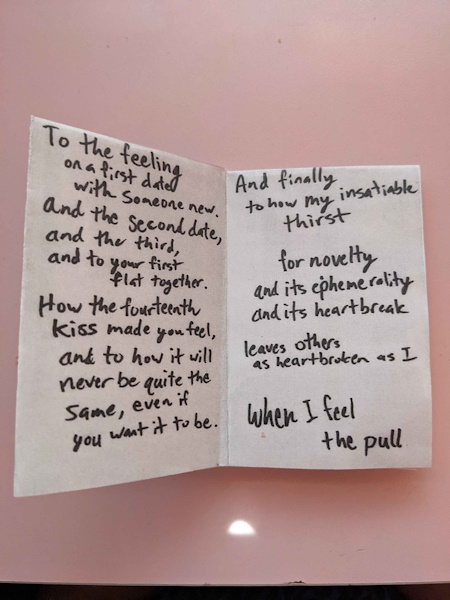 To the feeling
on a first date
with someone new.
and the second date,
and the third,
and to your first
flat together.
How the fourteenth
kiss made you feel,
and to how it will
never be quite the
same, even if
you want it to be.
And finally
to how my insatiable
thirst
for novelty
and its ephemerality
and its heartbreak
leaves others
as heartbroken as I
When I feel
the pull